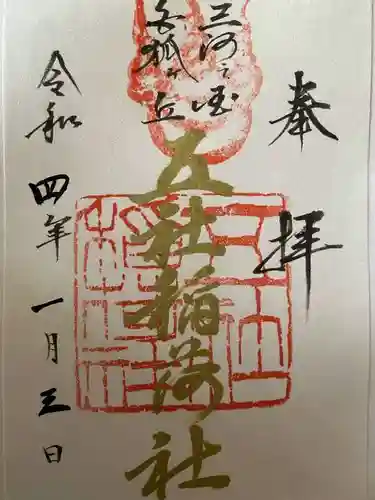 奉拝
三河之国
狐ヶ丘
五社稲荷社
令和四年一月三日